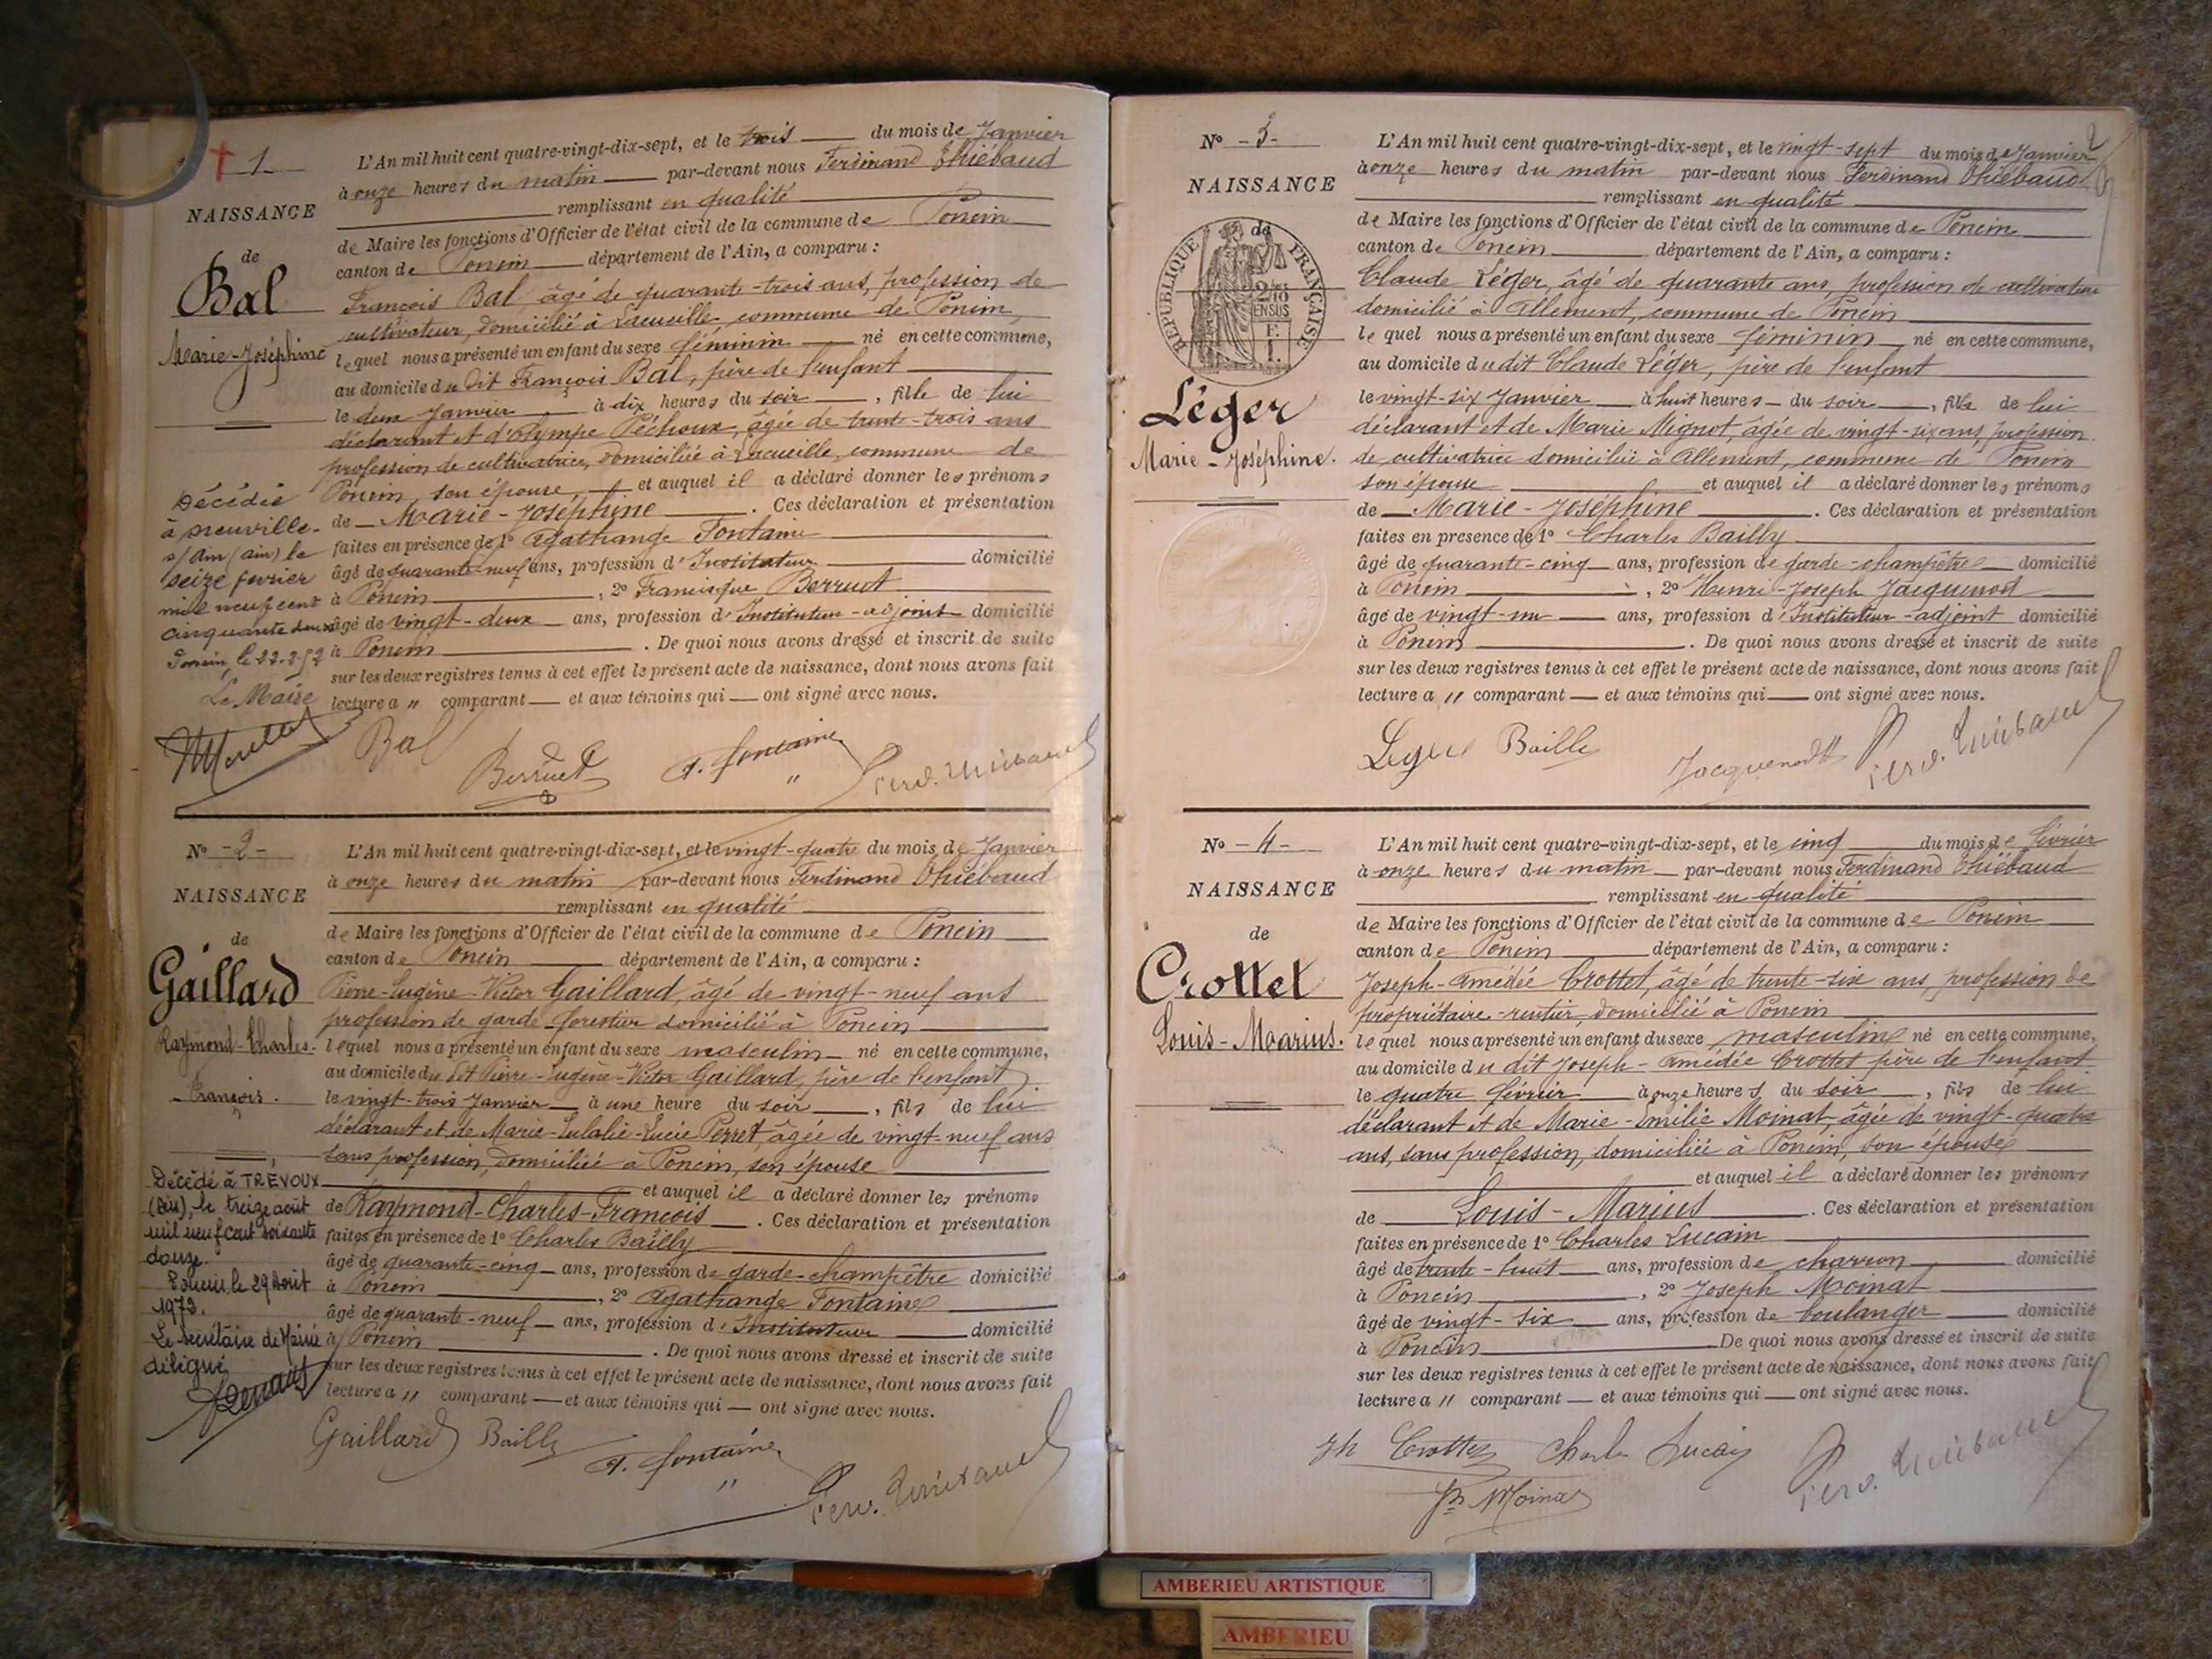 1
NAISSANCE
de
Bal
Marie-Joséphine
Décédée
à Neuville-
s/Ain (Ain) le
seize février
mil neuf cent
cinquante deux
Poncin, le 22.2.52
Le Maire
L'An mil huit cent quatre-vingt-dix-sept, et le trois du mois de Janvier
à onze heures du matin par-devant nous Ferdinand Thiébaud
remplissant en qualité
de Maire les fonctions d'Officier de l'état civil de la commune de Poncin
canton de Poncin département de l'Ain, a comparu :
François Bal, âgé de quarante-trois ans, profession de
cultivateur, domicilié à Lacueille commune de Poncin,
lequel nous a présenté un enfant du sexe féminin né en cette commune,
au domicile du dit François Bal, père de l'enfant
le deux Janvier à dix heures du soir, fille de lui
déclarant et d'Olympe Péchoux, âgée de trente-trois ans
profession de cultivatrice, domiciliée à Lacueille, commune de
Poncin, son épouse, et auquel il a déclaré donner les prénoms
de Marie-Joséphine. Ces déclaration et présentation
faites en présence de 1° Agathange Fontaine
âgé de quarante-neuf ans, profession d'Instituteur domicilié
à Poncin, 2° Francisque Berruet
âgé de vingt-deux ans, profession d'Instituteur-adjoint domicilié
à Poncin. De quoi nous avons dressé et inscrit de suite
sur les deux registres tenus à cet effet le présent acte de naissance, dont nous avons fait
lecture a " comparant — et aux témoins qui — ont signé avec nous.
Bal
Berruet
A. Fontaine
Ferd. Thiébaud
N° -2-
NAISSANCE
de
Gaillard
Raymond-Charles-
François.
Décédé à TRÉVOUX
(Ain), le treize août
mil neuf cent soixante
douze.
Poncin le 29 Août
1973.
Le Secrétaire de Mairie
délégué
L'An mil huit cent quatre-vingt-dix-sept, et le vingt-quatre du mois de Janvier
à onze heures du matin par-devant nous Ferdinand Thiébaud
remplissant en qualité
de Maire les fonctions d'Officier de l'état civil de la commune de Poncin
canton de Poncin département de l'Ain, a comparu :
Pierre-Eugène-Victor Gaillard, âgé de vingt-neuf ans
profession de garde-forestier domicilié à Poncin
lequel nous a présenté un enfant du sexe masculin né en cette commune,
au domicile du dit Pierre-Eugène-Victor Gaillard, père de l'enfant,
le vingt-trois Janvier à une heure du soir, fils de lui
déclarant et de Marie-Eulalie-Lucie Perret, âgée de vingt-neuf ans
sans profession, domiciliée à Poncin, son épouse
et auquel il a déclaré donner les prénoms
de Raymond-Charles-François. Ces déclaration et présentation
faites en présence de 1° Charles Bailly
âgé de quarante-cinq ans, profession de garde-champêtre domicilié
à Poncin, 2° Agathange Fontaine
âgé de quarante-neuf ans, profession d'Instituteur domicilié
à Poncin. De quoi nous avons dressé et inscrit de suite
sur les deux registres tenus à cet effet le présent acte de naissance, dont nous avons fait
lecture a " comparant — et aux témoins qui — ont signé avec nous.
Gaillard Bailly
A. Fontaine
Ferd. Thiébaud
2
N° -3-
NAISSANCE
de
RÉPUBLIQUE FRANÇAISE
2/10 EN SUS
Léger
Marie-Joséphine.
L'An mil huit cent quatre-vingt-dix-sept, et le vingt-sept du mois de Janvier
à onze heures du matin par-devant nous Ferdinand Thiébaud
remplissant en qualité
de Maire les fonctions d'Officier de l'état civil de la commune de Poncin
canton de Poncin département de l'Ain, a comparu :
Claude Léger, âgé de quarante ans, profession de cultivateur
domicilié à Allement, commune de Poncin
lequel nous a présenté un enfant du sexe féminin né en cette commune,
au domicile du dit Claude Léger, père de l'enfant
le vingt-six Janvier à huit heures du soir, fille de lui
déclarant et de Marie Mignot, âgée de vingt-six ans, profession
de cultivatrice domiciliée à Allement, commune de Poncin
son épouse et auquel il a déclaré donner les prénoms
de Marie-Joséphine. Ces déclaration et présentation
faites en présence de 1° Charles Bailly
âgé de quarante-cinq ans, profession de garde-champêtre domicilié
à Poncin, 2° Henri-Joseph Jacquenod
âgé de vingt-un ans, profession d'Instituteur-adjoint domicilié
à Poncin. De quoi nous avons dressé et inscrit de suite
sur les deux registres tenus à cet effet le présent acte de naissance, dont nous avons fait
lecture a " comparant — et aux témoins qui — ont signé avec nous.
Leger Bailly
Ferd. Thiébaud
N° -4-
NAISSANCE
de
Crottet
Louis-Marius.
L'An mil huit cent quatre-vingt-dix-sept, et le cinq du mois de Février
à onze heures du matin par-devant nous Ferdinand Thiébaud
remplissant en qualité
de Maire les fonctions d'Officier de l'état civil de la commune de Poncin
canton de Poncin département de l'Ain, a comparu :
Joseph-Amédée Crottet, âgé de trente-six ans, profession de
propriétaire-rentier, domicilié à Poncin
lequel nous a présenté un enfant du sexe masculin né en cette commune,
au domicile du dit Joseph-Amédée Crottet père de l'enfant
le quatre Février à onze heures du soir, fils de lui
déclarant et de Marie-Emilie Moinat, âgée de vingt-quatre
ans, sans profession, domiciliée à Poncin, son épouse
et auquel il a déclaré donner les prénoms
de Louis-Marius. Ces déclaration et présentation
faites en présence de 1° Charles Lucain
âgé de trente-huit ans, profession de charron domicilié
à Poncin, 2° Joseph Moinat
âgé de vingt-six ans, profession de boulanger domicilié
à Poncin De quoi nous avons dressé et inscrit de suite
sur les deux registres tenus à cet effet le présent acte de naissance, dont nous avons fait
lecture a " comparant — et aux témoins qui — ont signé avec nous.
Jh Crottet Charle Lucain
Jh Moinat
Ferd. Thiébaud
AMBERIEU ARTISTIQUE
AMBERIEU